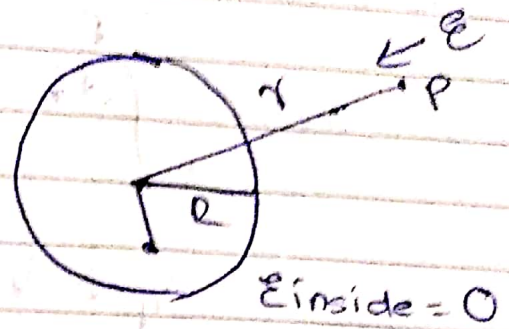 ℰ
r
P
R
ℰinside = 0